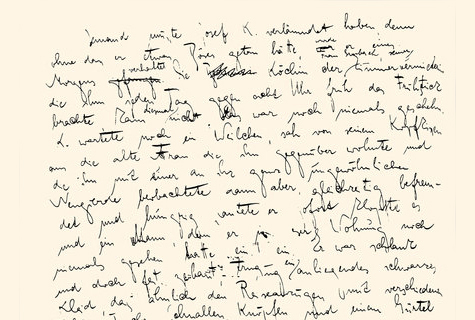 Jemand mußte Josef K. verläumdet haben, denn
ohne daß er etwas Böses getan hätte, war er eines
Morgens verhaftet. Die Köchin der Zimmervermieterin
die ihm jeden Tag gegen acht Uhr früh das Frühstück
brachte kam diesmal nicht. Das war noch niemals geschehn.
K. wartete noch ein Weilchen, sah von seinem Kopfkissen
aus die alte Frau die ihm gegenüber wohnte und
die ihn mit einer an ihr ganz ungewöhnlichen
Neugierde beobachtete dann aber, gleichzeitig befrem-
det und hungrig, läutete er. Sofort klopfte es
und ein Mann, den er in dieser Wohnung noch
niemals gesehen hatte trat ein. Er war schlank
und doch fest gebaut, er trug ein anliegendes schwarzes
Kleid, das ähnlich den Reiseanzügen mit verschiedenen
Schnallen, Knöpfen und einem Gürtel